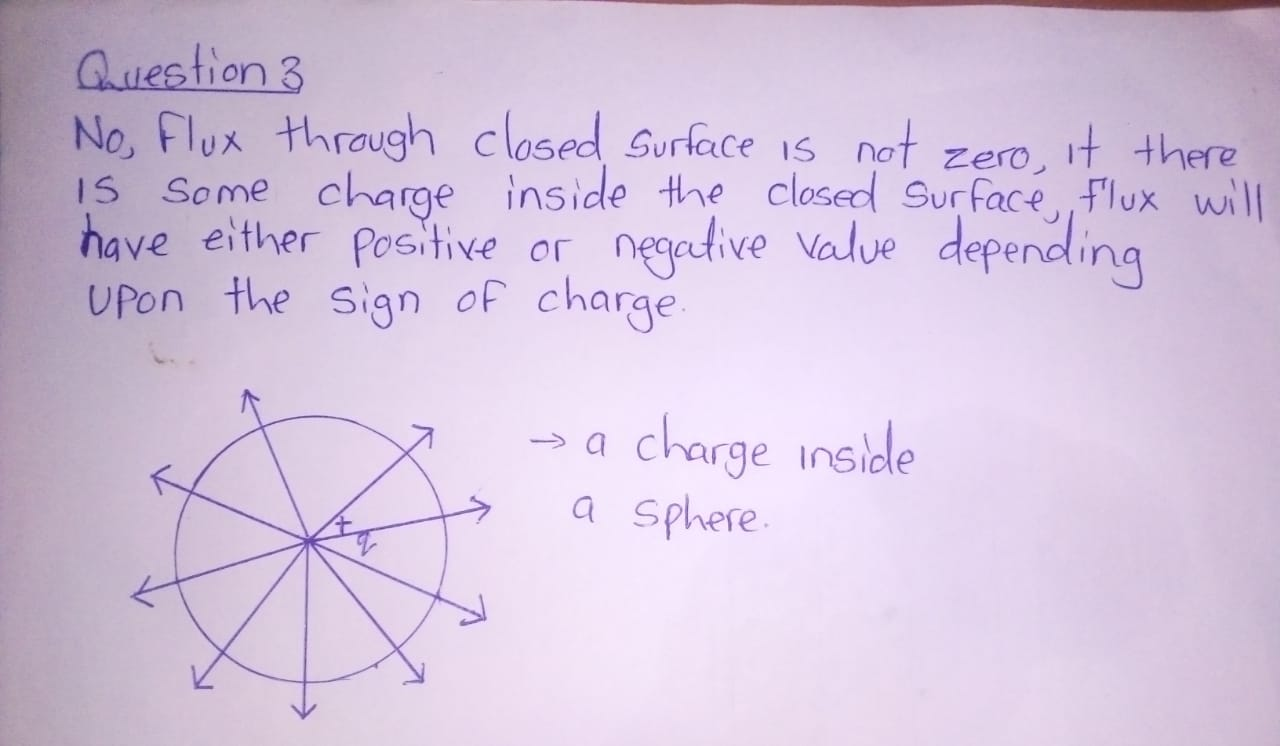 Question 3
No, Flux through closed Surface is not zero, if there
is some charge inside the closed Surface, flux will
have either positive or negative value depending
upon the sign of charge.
→ a charge inside
a sphere.
+
q